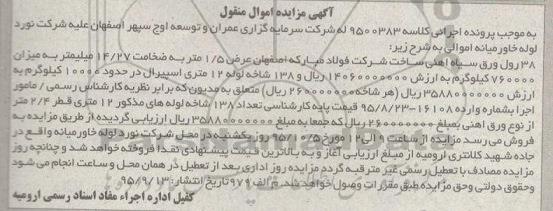 آگهی مزایده اموال منقول
به موجب پرونده اجرائی کلاسه ۹۵۰۰۳۸۳ له شرکت سرمایه گزاری عمران و توسعه اوج سپهر اصفهان علیه شرکت نورد
لوله خاورمیانه اموالی به شرح زیر:
۳۸ رول ورق سیاه آهنی ساخت شرکت فولاد مبارکه اصفهان عرض ۱/۵ متر به ضخامت ۱۴/۲۷ میلیمتر به میزان
۷۶۰۰۰۰ کیلوگرم به ارزش ۱۴۰۶۰۰۰۰۰۰۰ ریال و ۱۳۸ شاخه لوله ۱۲ متری اسپیرال در حدود ۱۰۰۰۰ کیلوگرم به
ارزش ۳۵۸۸۰۰۰۰۰۰۰ ریال (هر شاخه ۲۶۰۰۰۰۰۰۰ ریال) متعلق به مدیون که برابر نظریه کارشناس رسمی / مامور
اجرا بشماره وارده ۱۶۱۰۸-۹۵/۸/۲۳ قیمت پایه کارشناسی تعداد ۱۳۸ شاخه لوله های مذکور ۱۲ متری قطر ۲/۴ متر
از نوع ورق آهنی بمبلغ ۲۶۰۰۰۰۰۰۰ ریال که جمعا به مبلغ ۳۵۸۸۰۰۰۰۰۰۰ ریال ارزیابی گردیده از طریق مزایده به
فروش می رسد مزایده از ساعت ۹ الی ۱۲ مورخ ۹۵/۱۰/۵ روز یکشنبه در محل شرکت نورد لوله خاورمیانه واقع در
جاده شهید کلانتری ارومیه از مبلغ ارزیابی آغاز و به بالاترین قیمت پیشنهادی نقدا فروخته خواهد شد و چنانچه روز
مزایده مصادف با تعطیل رسمی غیر مترقبه گردد مزایده روز اداری بعد از تعطیل در همان محل و ساعت انجام می شود
وحقوق دولتی وحق مزایده طبق مقررات وصول خواهد شد. م الف ۹۷۹ تاریخ انتشار: ۹۵/۹/۱۳
کفیل اداره اجراء مفاد اسناد رسمی ارومیه